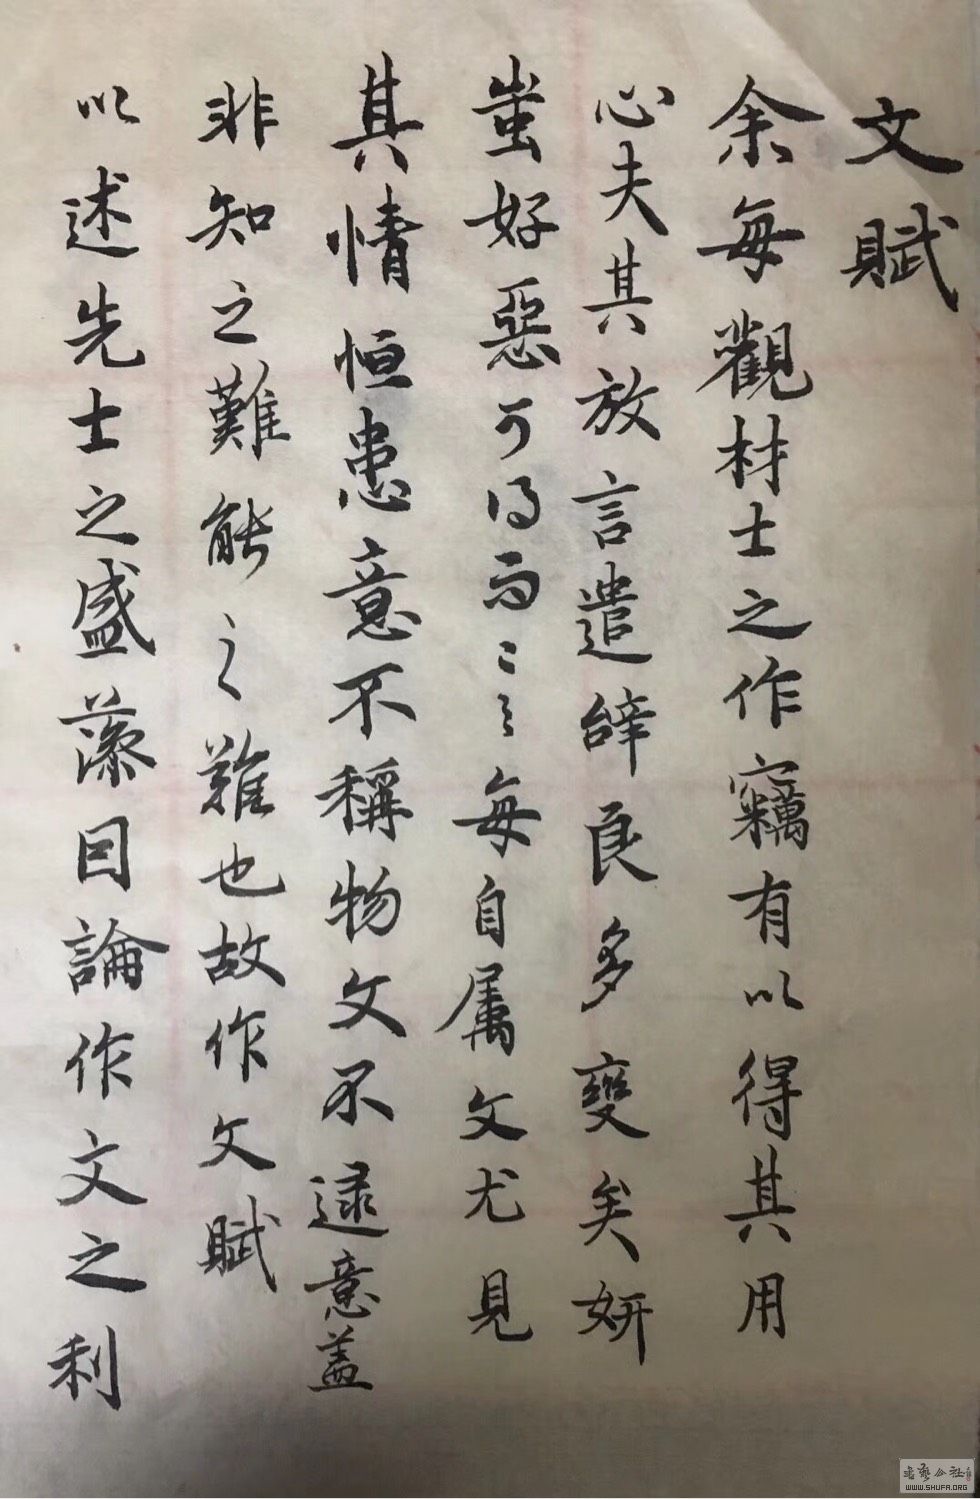 文賦
余每觀材士之作竊有以得其用
心夫其放言遣辭良多變矣妍
蚩好惡可得而言每自属文尤見
其情恒患意不稱物文不逮意盖
非知之難能之難也故作文賦
以述先士之盛藻因論作文之利
WWW.SHUFA.ORG